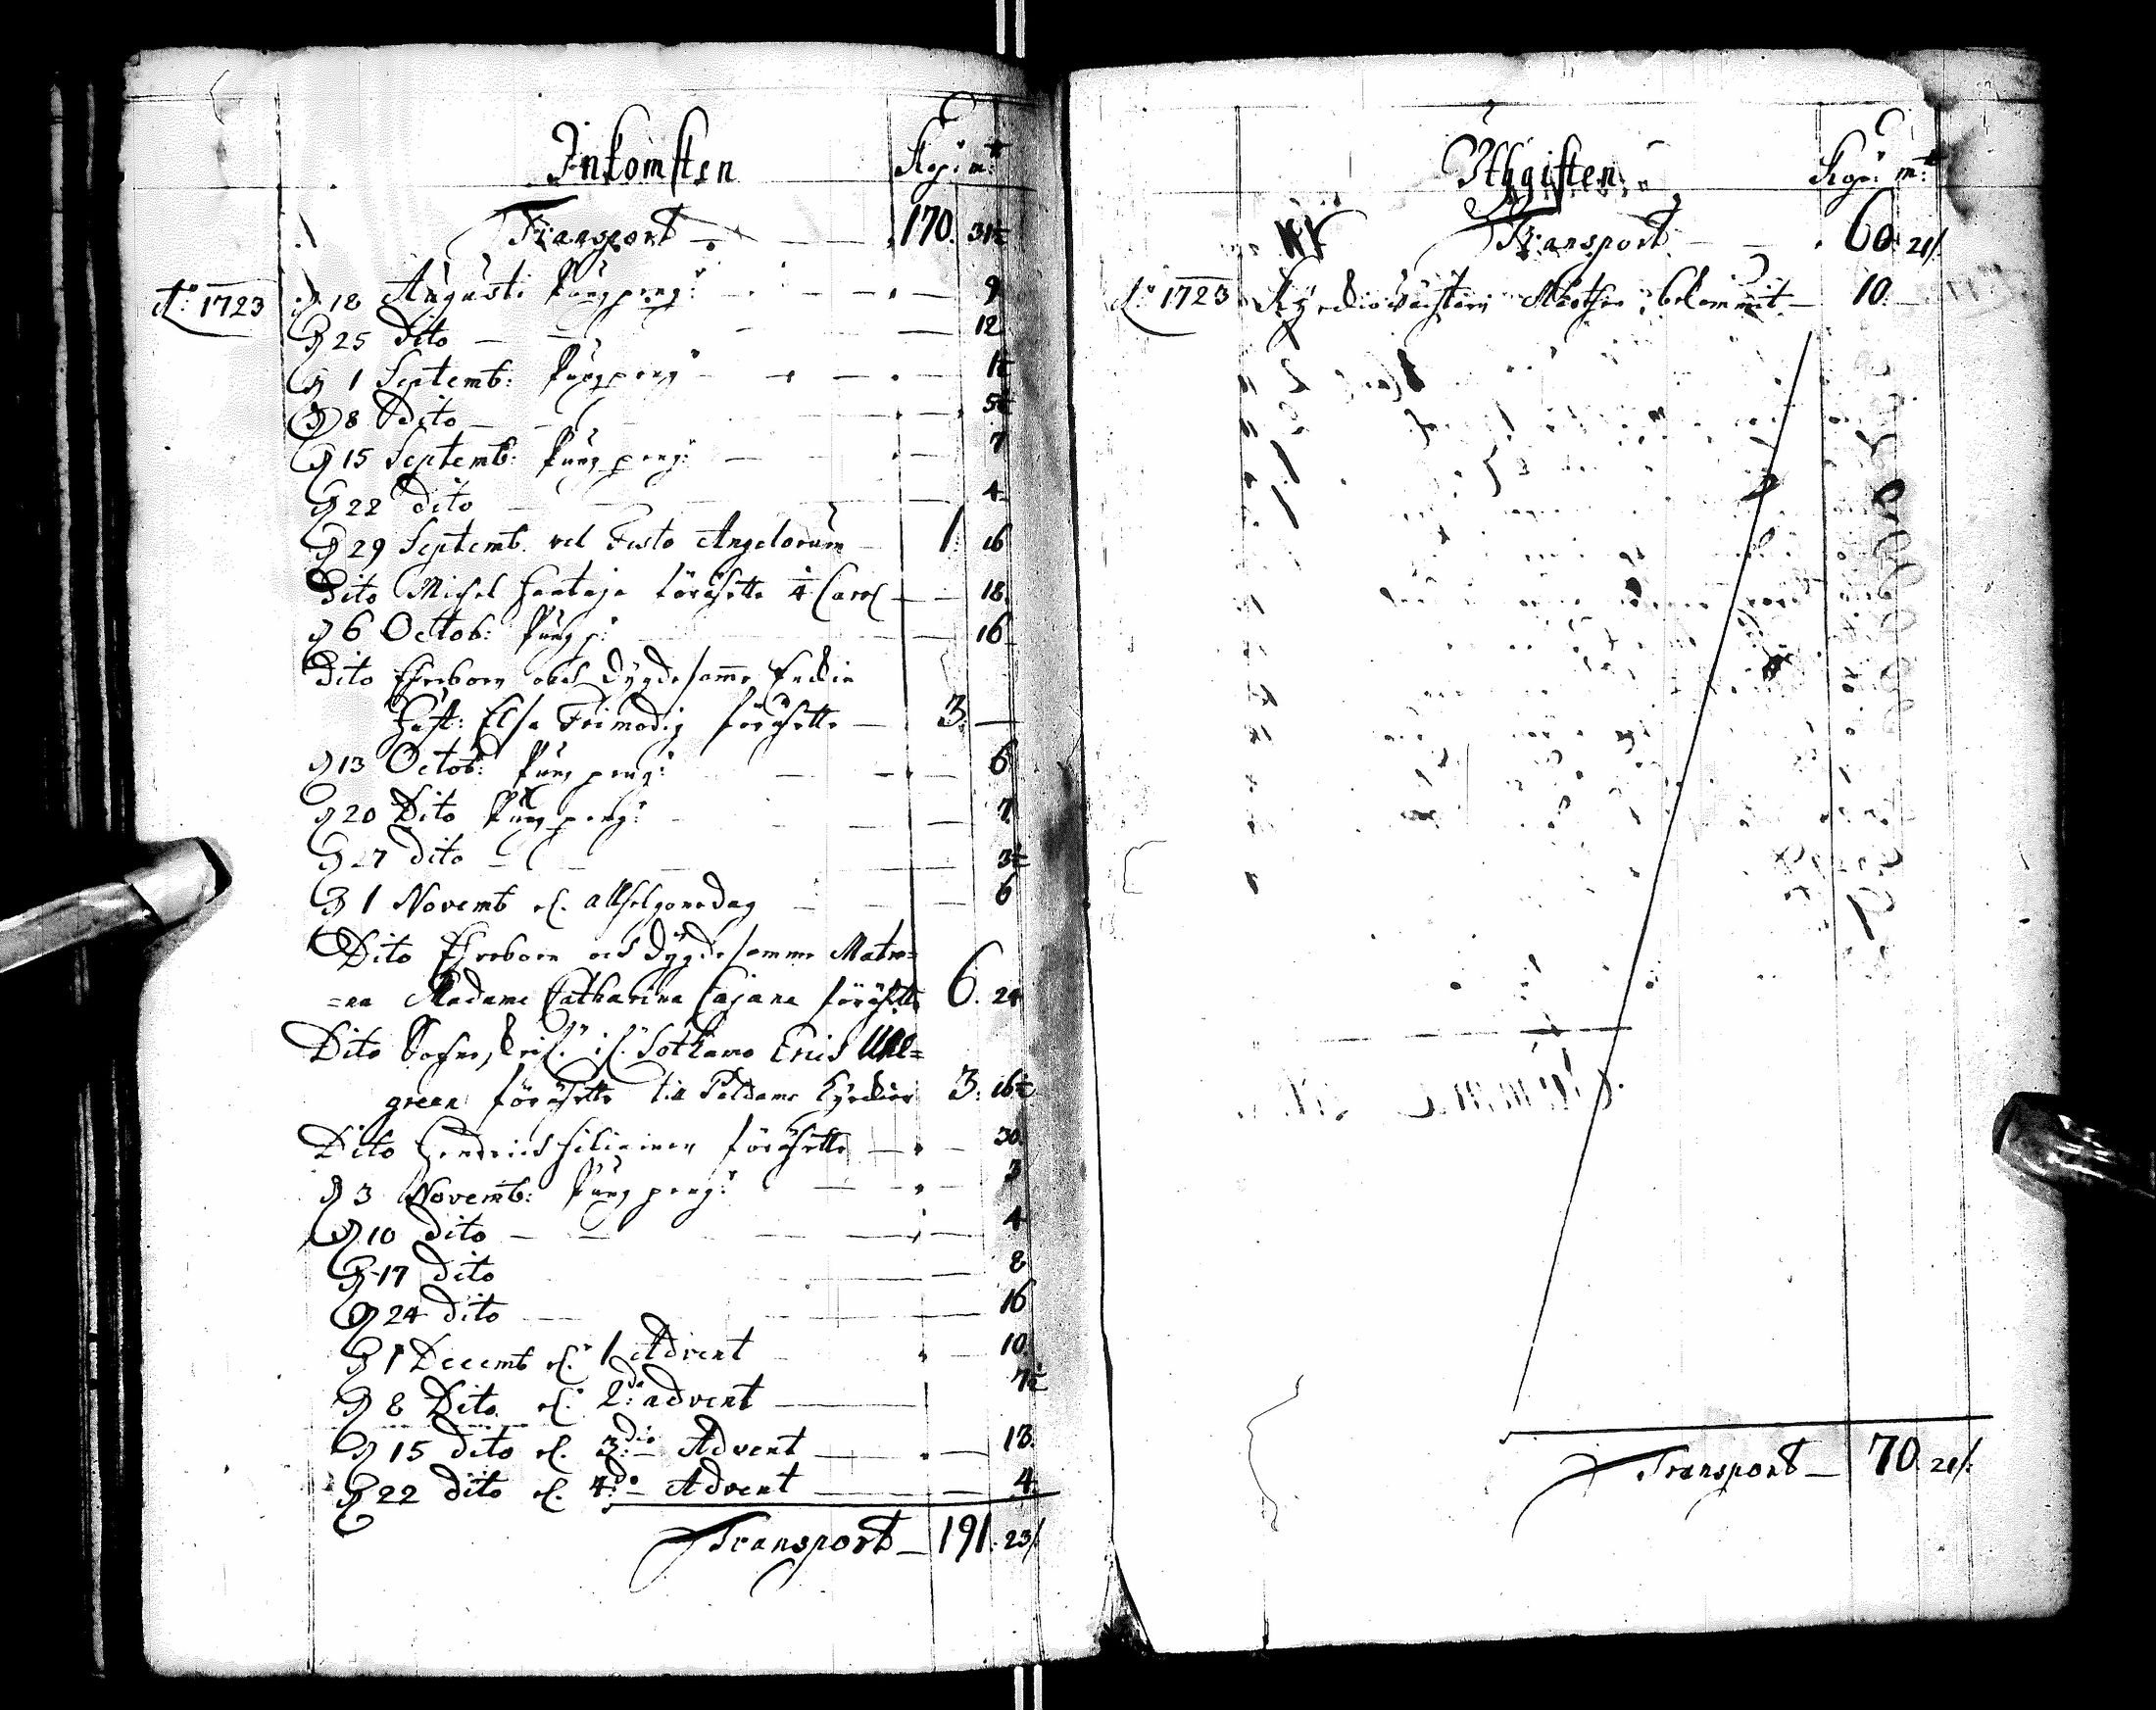 Inkomsten Kopp: mt
Transport 170. 31½
Ao 1723 D 18 Augusti Pungpeng: 9
D 25 Dito 12
D 1 Septemb: Pungpeng 1½
D 8 Dito 5½
D 15 Septemb: Pung peng: 7
D 22 Dito 4
D 29 Septemb. vel Festo Angelorum 1. 16
Dito Michel förährte 4 Carol 18
D 6 Octob: Pung p: 16
Dito Ehreborn och Dygdesamme
Hust: Elsa Frimodig förährte 3.
D 13 Octob: Pung peng: 6
D 20 Dito Pung peng: 7
D 27 dito 3½
D 1 Novemb el. allhelgonedag 6
Dito Ehreborn och Dygdesamme Matro=
=na Madame Catharina Cajana förährte 6. 24
Dito Sotkamo Eric
green förährte till Paldamo Kyrckior 3. 16½
Dito Hendrich förährte 30.
D 3 Novemb: Pung peng: 3
D 10 dito 4
D 17 dito 8
D 24 dito 16
D 1 Decemb el. 1 Advent 10.
D 8 Dito el. 2:da advent 7½
D 15 dito el. 3:die Advent 13.
D 22 dito el. 4:do Advent 4.
Transport 191. 23/.
Uthgiften Kopp: mt
Transport 60. 21/.
Ao 1723 bekommit 10.
Transport 70. 21/.